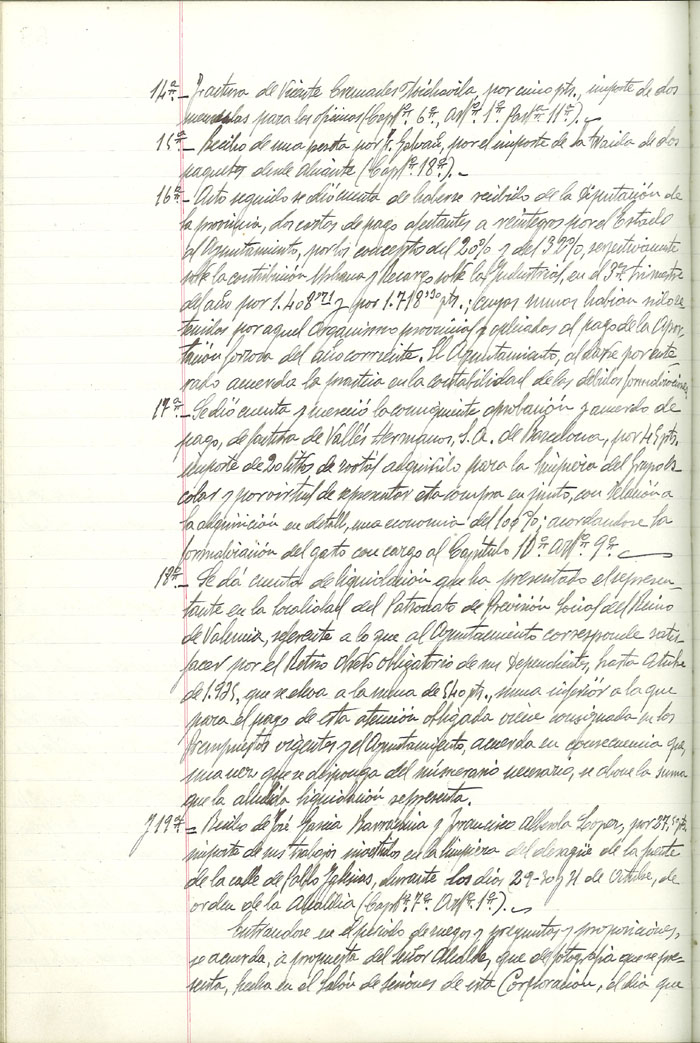 14ª.- Factura de Vicente Cremades, por cinco pts., importe de dos
para las oficinas (Capº. 6º. Artº. 1º. Parª. 11ª).-
15ª.- Recibo de una peseta por F. Galvañ, por el importe de la traida de dos
paquetes desde Alicante (Capº. 18º).-
16ª.- Acto seguido se dió cuenta de haberse recibido de la Diputación de
la provincia, dos cartas de pago afectantes a reintegros por el Estado
al Ayuntamiento, por los conceptos del 20% y del 32%, respectivamente
sobre la contribución Urbana y Recargo sobre la Industrial, en el 3er. trimestre
del año por 1.408'71 y por 1.718'30 pts.; cuyas sumas habian sido re-
tenidas por aquel Organismo provincial y aplicadas al pago de la Apor-
tación forzosa del año corriente. El Ayuntamiento, al darse por ente-
rado acuerda la practica en la contabilidad de las debidas formalizaciones.
17ª.- Se dió cuenta y mereció la consiguiente aprobación y acuerdo de
pago, de factura de Vallés Hermanos, S.A. de Barcelona, por 45 pts.
importe de 20 litros de adquirido para la limpieza del Grupo Es-
colar y por virtud de representar esta compra en junto, con relación a
la adquisición en detall, una economia del 100%; acordandose la
formalización del gasto con cargo al Capítulo 10º Artº 9º.
18ª.- Se dá cuenta de liquidación que ha presentado el represen-
tante en la localidad del Patronato de Previsión Social del Reino
de Valencia, referente a lo que al Ayuntamiento corresponde satis-
facer por el Retiro Obrero Obligatorio de sus Dependientes, hasta Octubre
de 1.935, que se eleva a la suma de 540 pts., suma inferior a la que
para el pago de esta atención obligada viene consignada en los
Presupuestos vigentes y el Ayuntamiento, acuerda en consecuencia que,
una vez que se disponga del numerario necesario, se abone la suma
que la aludida liquidación representa.
y 19ª.- Recibo de José Garcia y Francisco Alberola Lopez, por
importe de sus trabajos invertidos en la limpieza del desagüe de la fuente
de la calle de Pablo Iglesias, durante los dias 29-30 y 31 de Octubre, de
orden de la Alcaldia (Capº. 7º. Artº. 1º).-
Entrandose en el periodo de ruegos y preguntas y proposiciones,
se acuerda, a propuesta del señor Alcalde, que de fotografia que se pre-
senta, hecha en el Salón de Sesiones de esta Corporación, el dia que